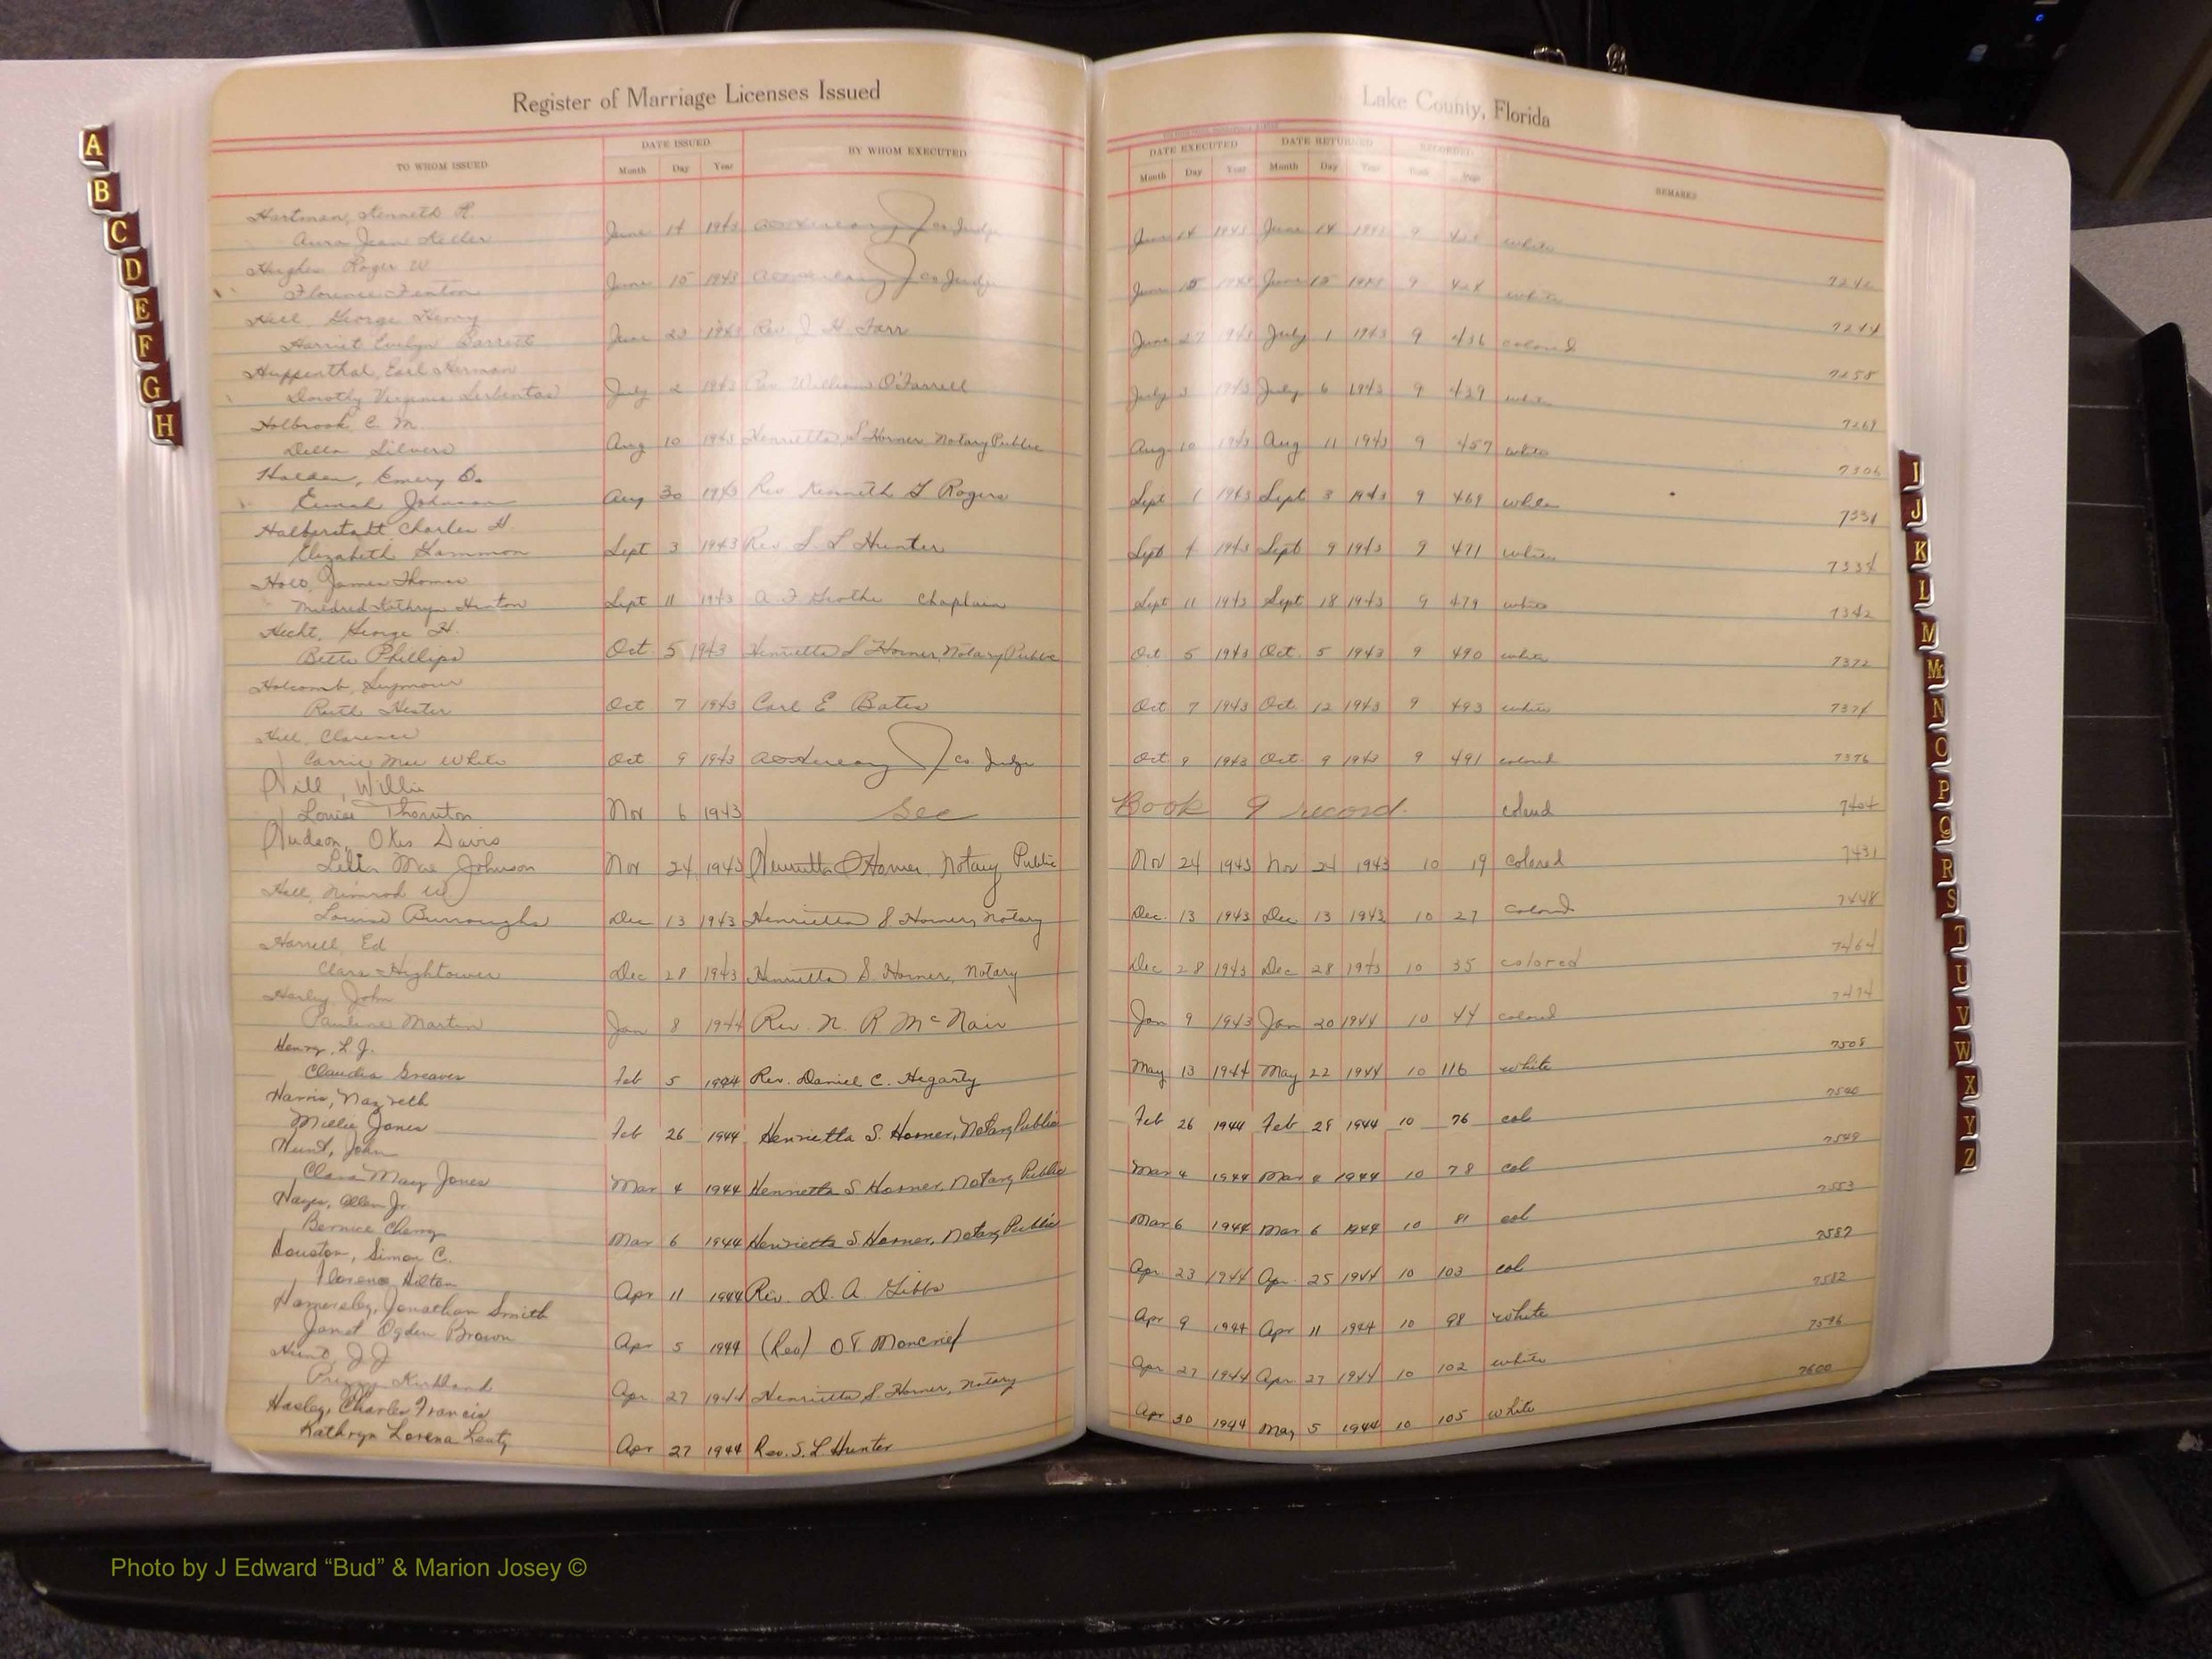 Register of Marriage Licenses Issued
Lake County, Florida
TO WHOM ISSUED DATE ISSUED BY WHOM EXECUTED DATE EXECUTED DATE RETURNED RECORDED REMARKS
Month Day Year Month Day Year Month Day Year Book Page
Hartman, Kenneth R.
Jean June 14 1943 Co Judge June 14 1943 June 14 1943 9 white
Hughes Roger W
Florence Fenton June 15 1943 Co Judge June 15 1943 June 15 1943 9 424 white
Hill, George Henry
Harriet Evelyn June 1943 Rev J H Farr June 27 1943 July 1 1943 9 436 colored 7244
Huppenthal, Earl Herman
Dorothy Virginia July 2 1943 Rev. William O'Farrell July 3 1943 July 6 1943 9 439 white 7258
Holbrook, C. M.
Della Silvers Aug 10 1943 Henrietta S Horner, Notary Public Aug 10 1943 Aug 11 1943 9 457 white 7269
Holden, Emery
Johnson Aug 30 1943 Rev Kenneth G Rogers Sept 1 1943 Sept 3 1943 9 469 white 7306
Halberstadt, Charles H
Elizabeth Gammon Sept 3 1943 Rev. S L Hunter Sept 4 1943 Sept 9 1943 9 471 white 7331
James Thomas
Mildred Kathryn Hinton Sept 11 1943 Chaplain Sept 11 1943 Sept 18 1943 9 479 white 7334
Hecht, George H.
Bette Phillips Oct 5 1943 Henrietta S Horner, Notary Public Oct 5 1943 Oct 5 1943 9 490 white 7342
Holcomb, Seymour
Ruth Hester Oct 7 1943 Carl E Bates Oct 7 1943 Oct 12 1943 9 493 white 7372
Hill, Clarence
Carrie Mae White Oct 9 1943 Co Judge Oct 9 1943 Oct 9 1943 9 491 colored 7374
Hill, Willie 7376
Louise Thornton Nov 6 1943 See Book 9 record. colored 7404
Hudson, Davis
Mae Johnson Nov 24 1943 Henrietta S Horner, Notary Public Nov 24 1943 Nov 24 1943 10 19 colored 7431
Hill, Nimrod W
Louise Burroughs Dec 13 1943 Henrietta S. Horner, Notary Dec. 13 1943 Dec. 13 1943 10 27 colored 7448
Harrell, Ed
Clara Hightower Dec 28 1943 Henrietta S. Horner, Notary Dec 28 1943 Dec 28 1943 10 35 colored 7464
Harley, John
Pauline Martin Jan 8 1944 Rev. N. R McNair Jan 9 1943 Jan 20 1944 10 44 colored 7474
Henry, L. J.
Claudia Greaves Feb 5 1944 Rev. Daniel C. Hegarty May 13 1944 May 22 1944 10 116 white 7508
Harris, Nazreth
Millie Jones Feb 26 1944 Henrietta S. Horner, Notary Public Feb 26 1944 Feb 28 1944 10 76 col 7540
Hunt, John
Clara May Jones Mar 4 1944 Henrietta S Horner, Notary Public Mar 4 1944 Mar 4 1944 10 78 col 7549
Hayes, Allen Jr.
Bernice Cherry Mar 6 1944 Henrietta S Horner, Notary Public Mar 6 1944 Mar 6 1944 10 81 col 7553
Houston, Simon C.
Florence Hilton Apr 11 1944 Rev. D. A. Gibbs Apr 23 1944 Apr 25 1944 10 103 col
Hamersley, Jonathan Smith
Janet Ogden Brown Apr 5 1944 (Rev) O T Moncrief Apr 9 1944 Apr 11 1944 10 98 white 7582
Hunt, J J
Kirkland Apr 27 1944 Henrietta S. Horner, Notary Apr 27 1944 Apr 27 1944 10 102 white 7596
Hasley, Charles Francis
Kathryn Lorena Apr 27 1944 Rev. S. L. Hunter Apr 30 1944 May 5 1944 10 105 white 7600
A
B
C
D
E
F
G
H
I
J
K
L
M
Mc
N
O
P
Q
R
S
T
U
V
W
X
Y
Z
Photo by J Edward “Bud” & Marion Josey ©